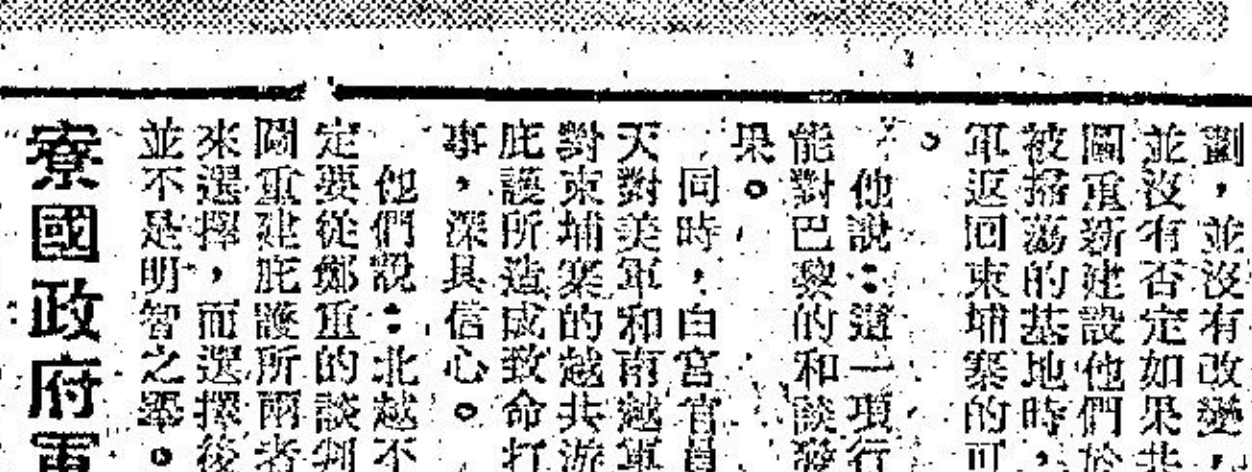 劃，並沒有改變，
並沒有否定如果共
圖重新建設他們於
被掃蕩的基地時，
軍返回柬埔寨的可
。
他說：這一項行
能對巴黎的和談發
果。
同時，白宮官員
天對美軍和南越軍
對柬埔寨的越共游
庇護所造成致命打
事，深具信心。
他們說：北越不
定要從鄭重的談判
圖重建庇護所兩者
來選擇，而選擇後
並不是明智之舉。
寮國政府軍